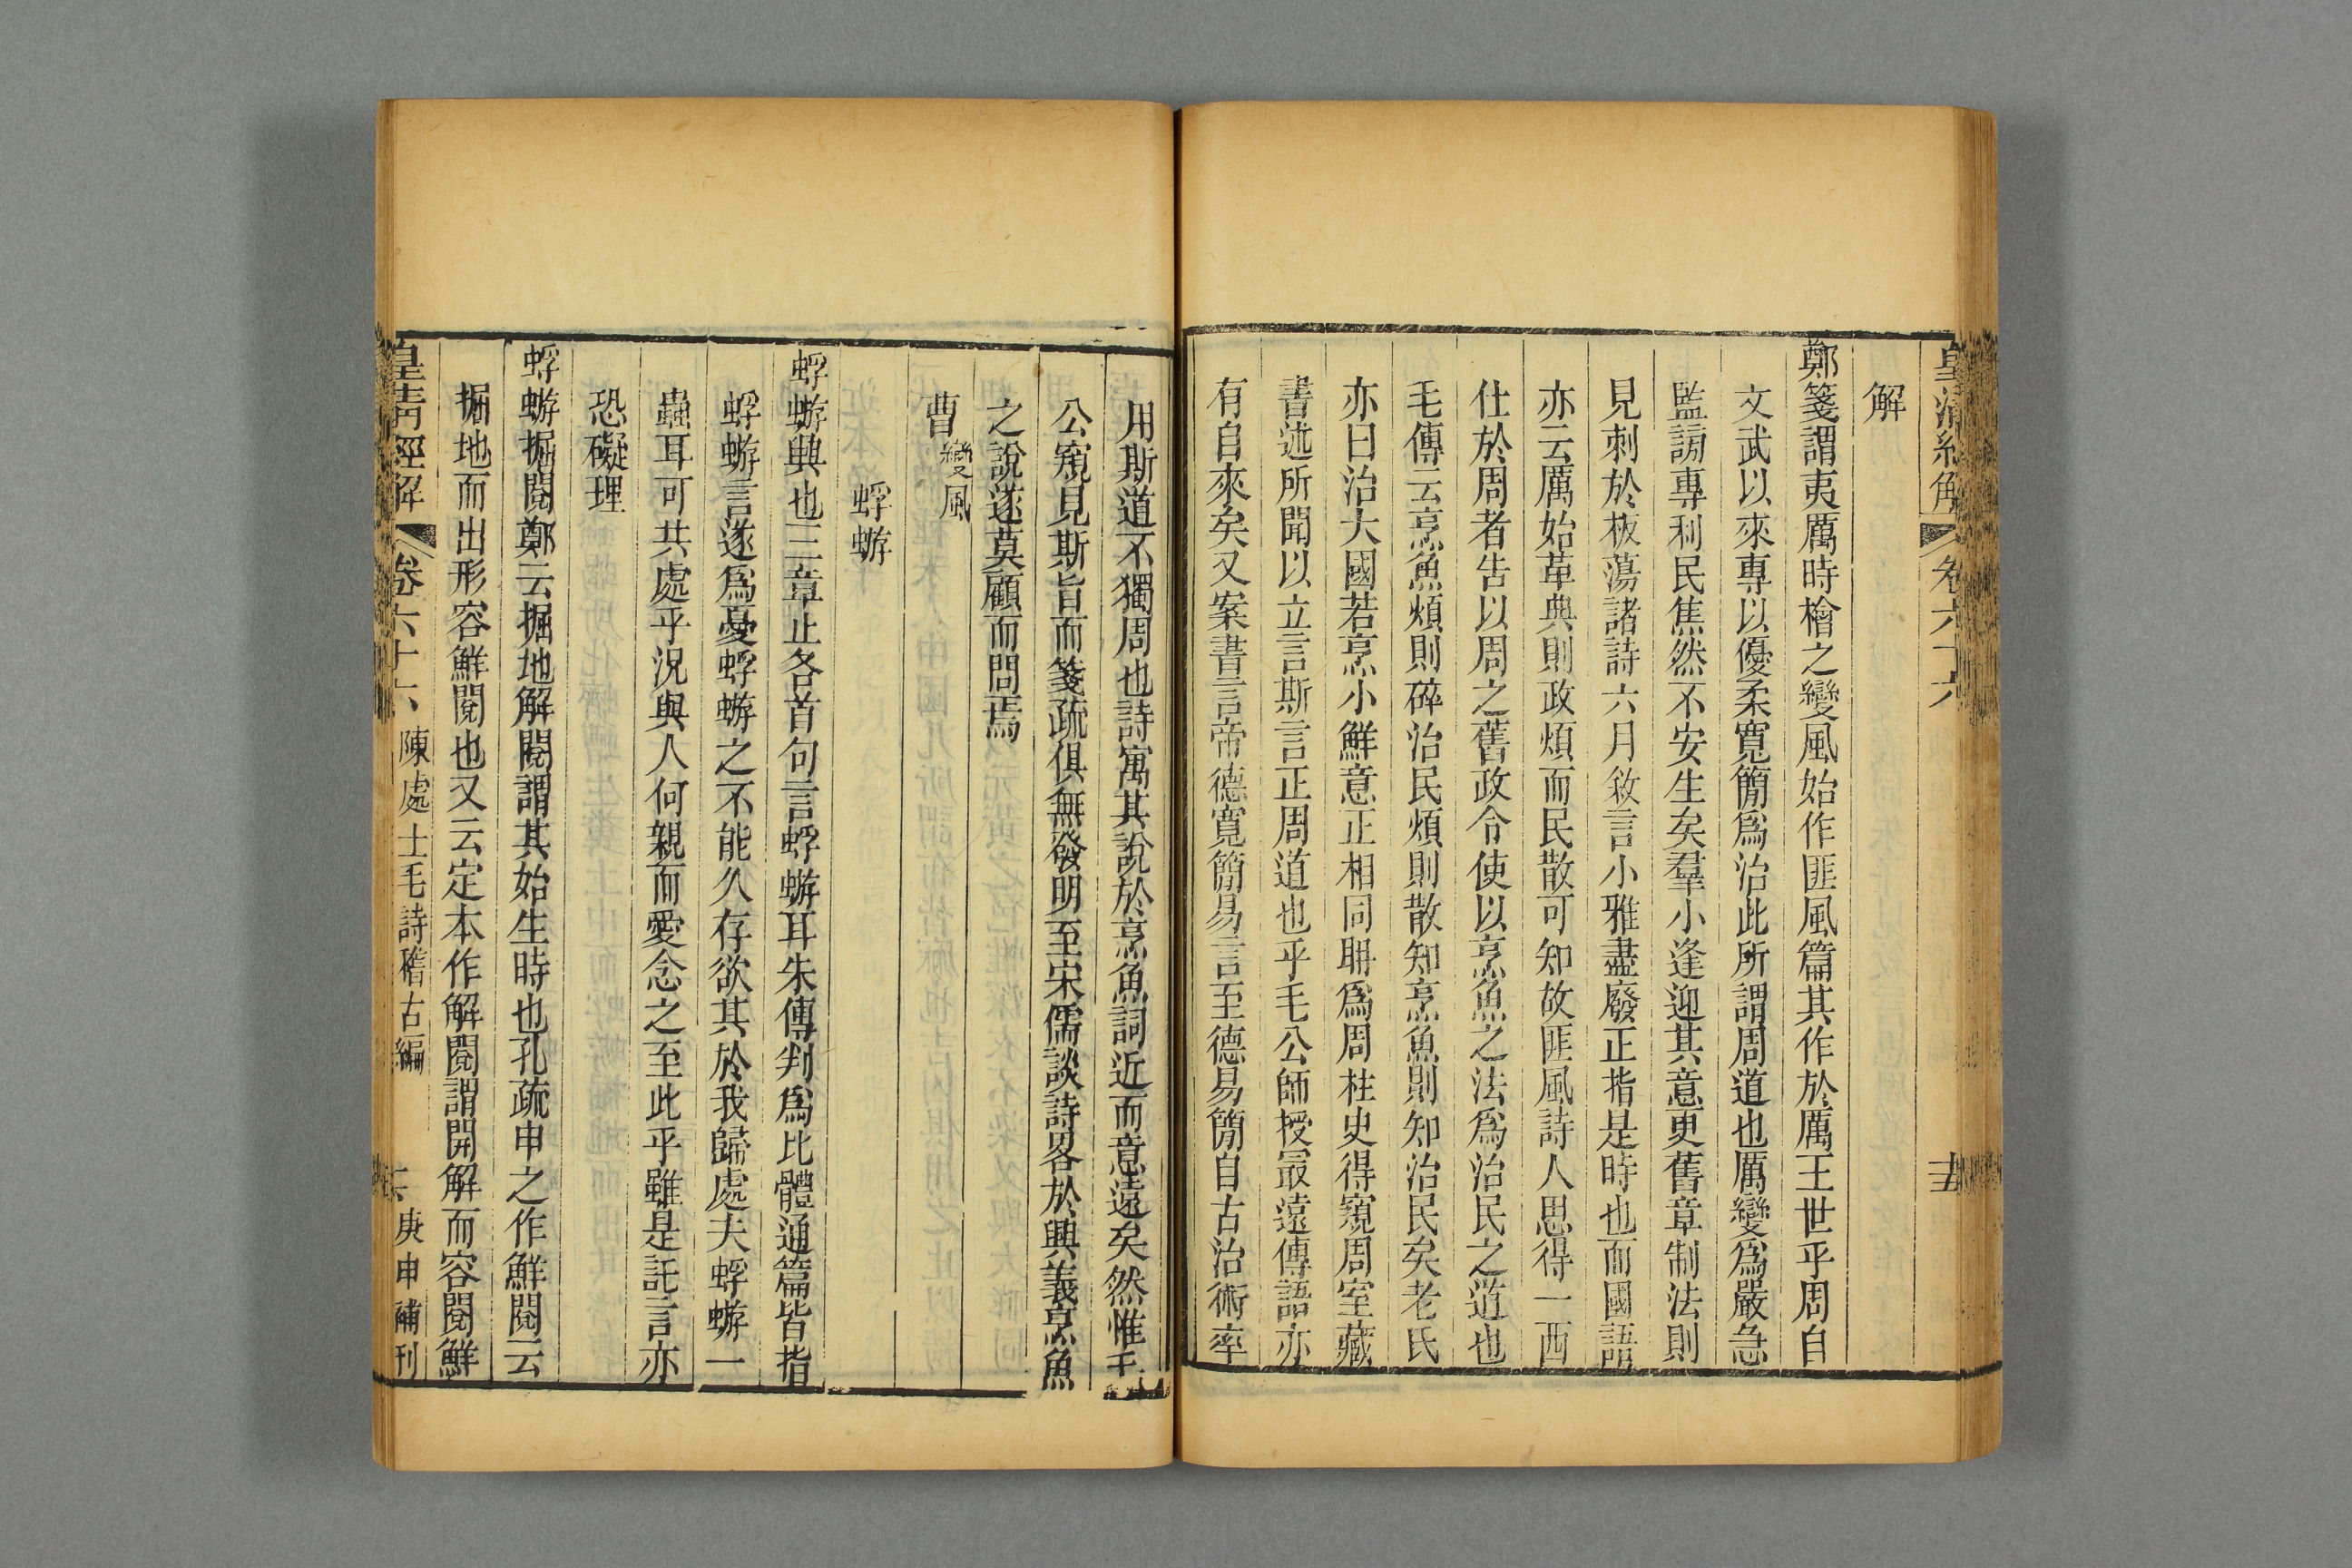 皇清經解 卷六十六 十五
解
鄭箋謂夷厲時檜之變風始作匪風篇其作於厲王世乎周自
文武以來專以優柔寬簡爲治此所謂周道也厲變爲嚴急
監謗專利民焦然不安生矣羣小逢迎其意更舊章制法則
見刺於板蕩諸詩六月敘言小雅盡廢正指是時也而國語
亦云厲始革典則政煩而民散可知故匪風詩人思得一西
仕於周者告以周之舊政令使以烹魚之法爲治民之道也
毛傳云烹魚煩則碎治民煩則散知烹魚則知治民矣老氏
亦曰治大國若烹小鮮意正相同聃爲周柱史得窺周室藏
書述所聞以立言斯言正周道也乎毛公師授最遠傳語亦
有自來矣又案書言帝德寬簡易言至德易簡自古治術率
用斯道不獨周也詩寓其說於烹魚詞近而意遠矣然惟毛
公窺見斯旨而箋疏俱無發明至宋儒談詩畧於興義烹魚
之說遂莫顧而問焉
曹變風
蜉蝣
蜉蝣興也三章止各首句言蜉蝣耳朱傳判爲比體通篇皆指
蜉蝣言遂爲憂蜉蝣之不能久存欲其於我歸處夫蜉蝣一
蟲耳可共處乎況與人何親而愛念之至此乎雖是託言亦
恐礙理
蜉蝣掘閱鄭云掘地解閱謂其始生時也孔疏申之作鮮閱云
掘地而出形容鮮閱也又云定本作解閱謂開解而容閱鮮
皇清經解 卷六十六 陳處士毛詩稽古編 庚申補刊